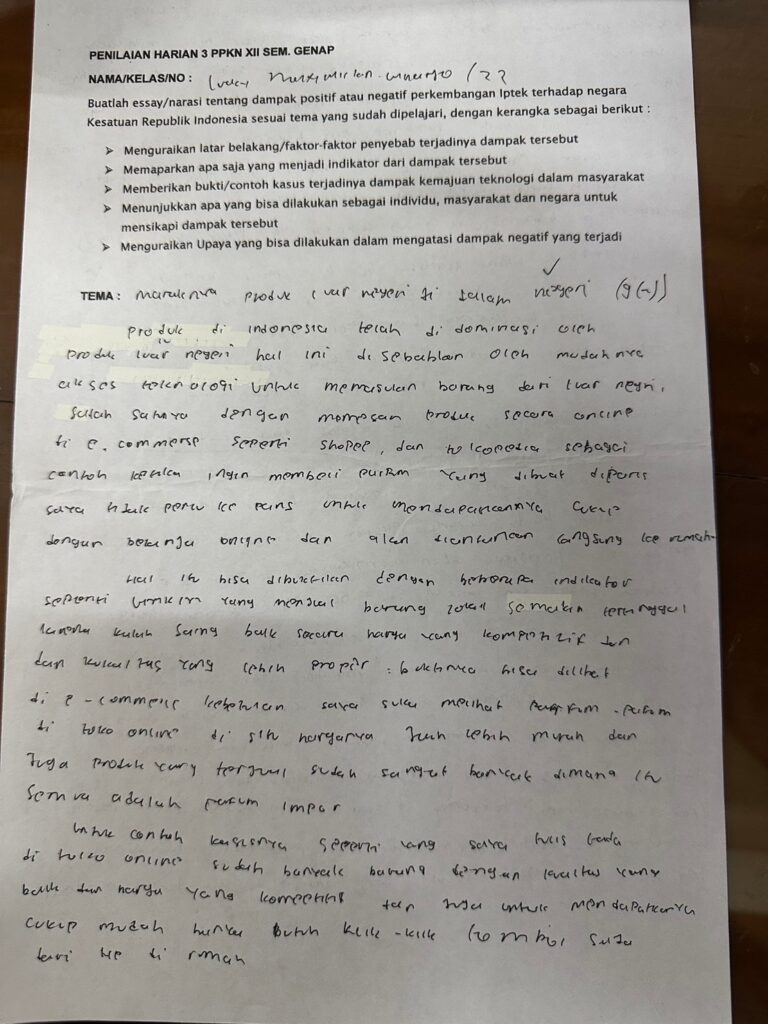 PENILAIAN HARIAN 3 PPKN XII SEM. GENAP
NAMA/KELAS/NO : /
Buatlah essay/narasi tentang dampak positif atau negatif perkembangan Iptek terhadap negara
Kesatuan Republik Indonesia sesuai tema yang sudah dipelajari, dengan kerangka sebagai berikut :
➤ Menguraikan latar belakang/faktor-faktor penyebab terjadinya dampak tersebut
➤ Memaparkan apa saja yang menjadi indikator dari dampak tersebut
➤ Memberikan bukti/contoh kasus terjadinya dampak kemajuan teknologi dalam masyarakat
➤ Menunjukkan apa yang bisa dilakukan sebagai individu, masyarakat dan negara untuk
mensikapi dampak tersebut
➤ Menguraikan Upaya yang bisa dilakukan dalam mengatasi dampak negatif yang terjadi
TEMA : maraknya produk luar negeri di dalam negeri
produk di indonesia telah di dominasi oleh
produk luar negeri hal ini di sebabkan oleh mudahnya
akses teknologi untuk memasukan barang dari luar negri.
Salah satunya dengan memesan produk secara online
di e.commerse seperti shopee, dan tokopedia sebagai
contoh ketika ingin membeli parfum yang dibuat diparis
saya tidak perlu ke paris untuk mendapatkannya cukup
dengan belanja online dan akan diantarkan langsung ke rumah.
Hal itu bisa dibuktikan dengan beberapa indikator
seperti umkm yang menjual barang lokal semakin tertinggal
karena kalah saing baik secara harga yang kompetitif dan
dan kualitas yang lebih proper. buktinya bisa dilihat
di e-commerc kebetulan saya suka melihat parfum-parfum
di toko online di situ harganya jauh lebih murah dan
juga produk yang terjual sudah sangat banyak dimana itu
semua adalah parfum impor
Untuk contoh kasusnya seperti yang saya tulis tada
di toko online sudah banyak barang dengan kualitas yang
baik dan harga yang kompetitif dan juga untuk mendapatkannya
cukup mudah hanya butuh klik-klik tombol saja
dari hp di rumah